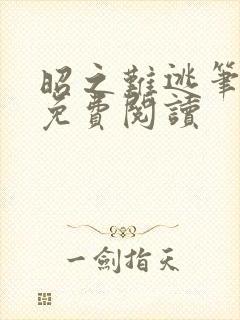 昭之難逃筆
免費閱讀
一劍指天